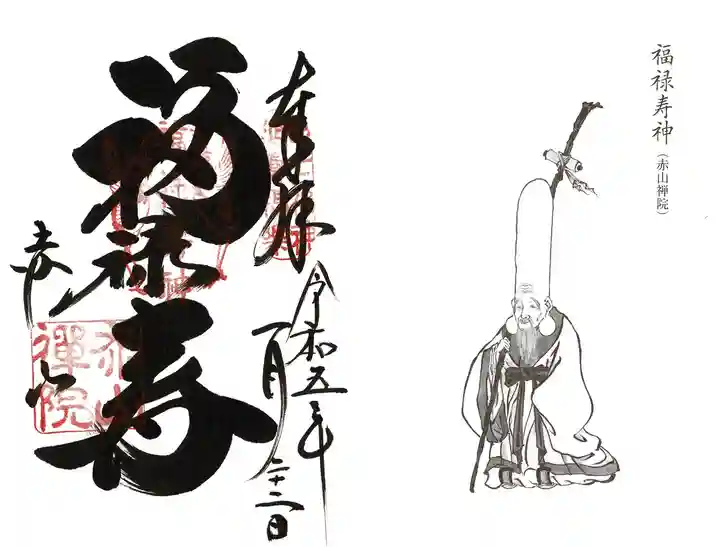 福禄寿神（赤山禅院）
奉拝
令和五年
一月二十二日
福禄寿
赤山
赤山
禪院